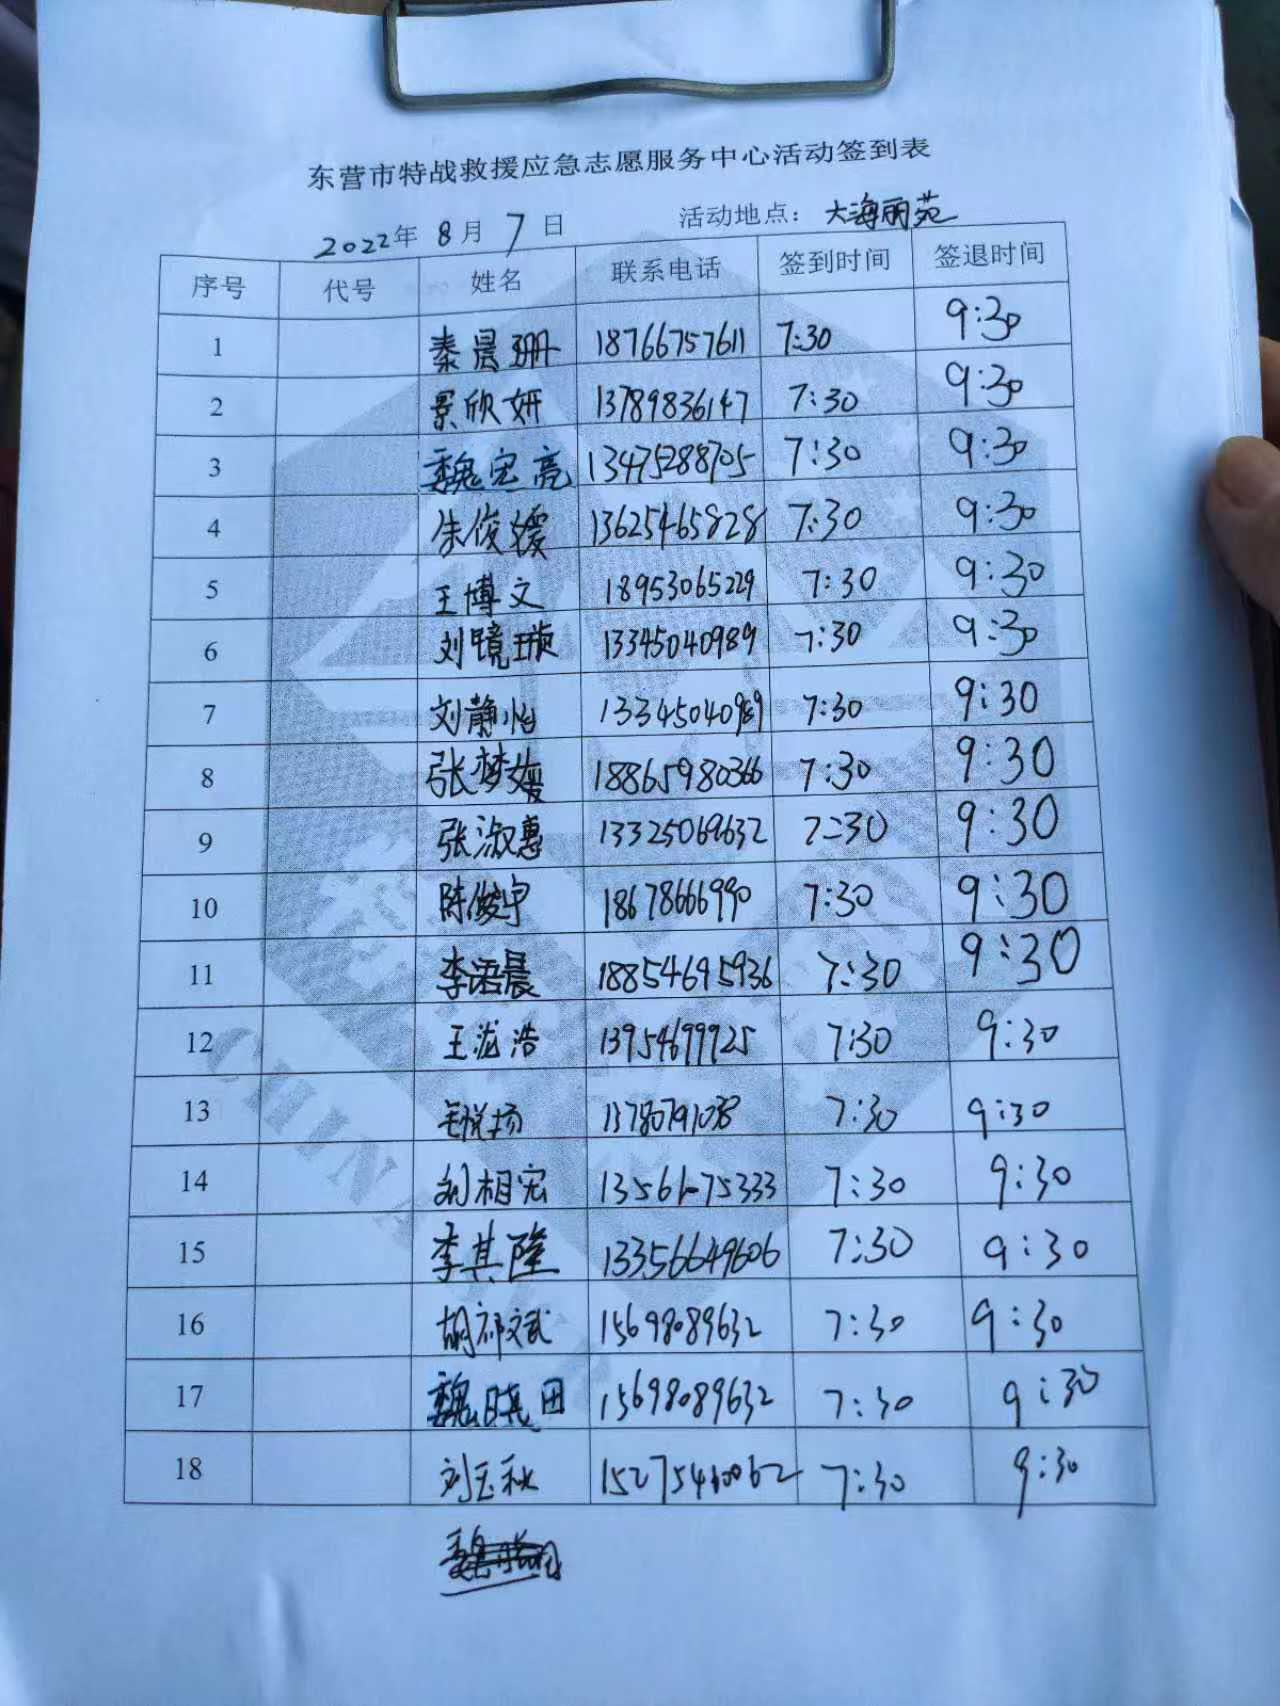 东营市特战救援应急志愿服务中心活动签到表
2022年 8月 7日 活动地点: 大海丽苑
序号 代号 姓名 联系电话 签到时间 签退时间
1 秦晨珊 18766757611 7:30 9:30
2 景欣妍 13789836147 7:30 9:30
3 魏宏亮 13475288705 7:30 9:30
4 朱俊媛 13625465828 7:30 9:30
5 王博文 18953065229 7:30 9:30
6 刘镜璇 13345040989 7:30 9:30
7 刘静怡 13345040989 7:30 9:30
8 张梦媛 18865980366 7:30 9:30
9 张淑惠 13325069632 7:30 9:30
10 陈俊宇 18678666990 7:30 9:30
11 李语晨 18854695936 7:30 9:30
12 王泷浩 13954699925 7:30 9:30
13 7:30 9:30
14 刘相宏 13561675333 7:30 9:30
15 李其隆 13356649606 7:30 9:30
16 胡祁文斌 15698089632 7:30 9:30
17 魏晓田 15698089632 7:30 9:30
18 刘玉秋 15275460062 7:30 9:30
CHINA